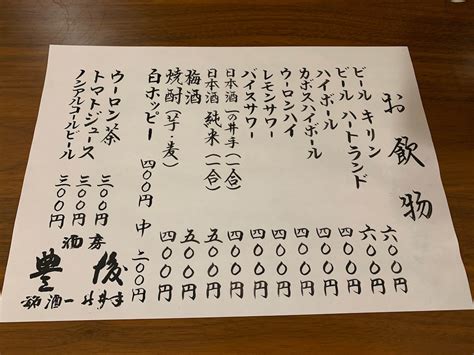 お飲物
ビール キリン 六〇〇円
ビール ハートランド 六〇〇円
ハイボール 四〇〇円
カボスハイボール 四〇〇円
ウーロンハイ 四〇〇円
レモンサワー 四〇〇円
バイスサワー 四〇〇円
日本酒 一の井手(一合) 四〇〇円
日本酒 純米(一合) 五〇〇円
梅酒 五〇〇円
焼酎(芋・麦) 四〇〇円
白ホッピー 四〇〇円 中 二〇〇円
ウーロン茶 三〇〇円
トマトジュース 三〇〇円
ノンアルコールビール 三〇〇円
酒房
豊後
銘酒一の井手